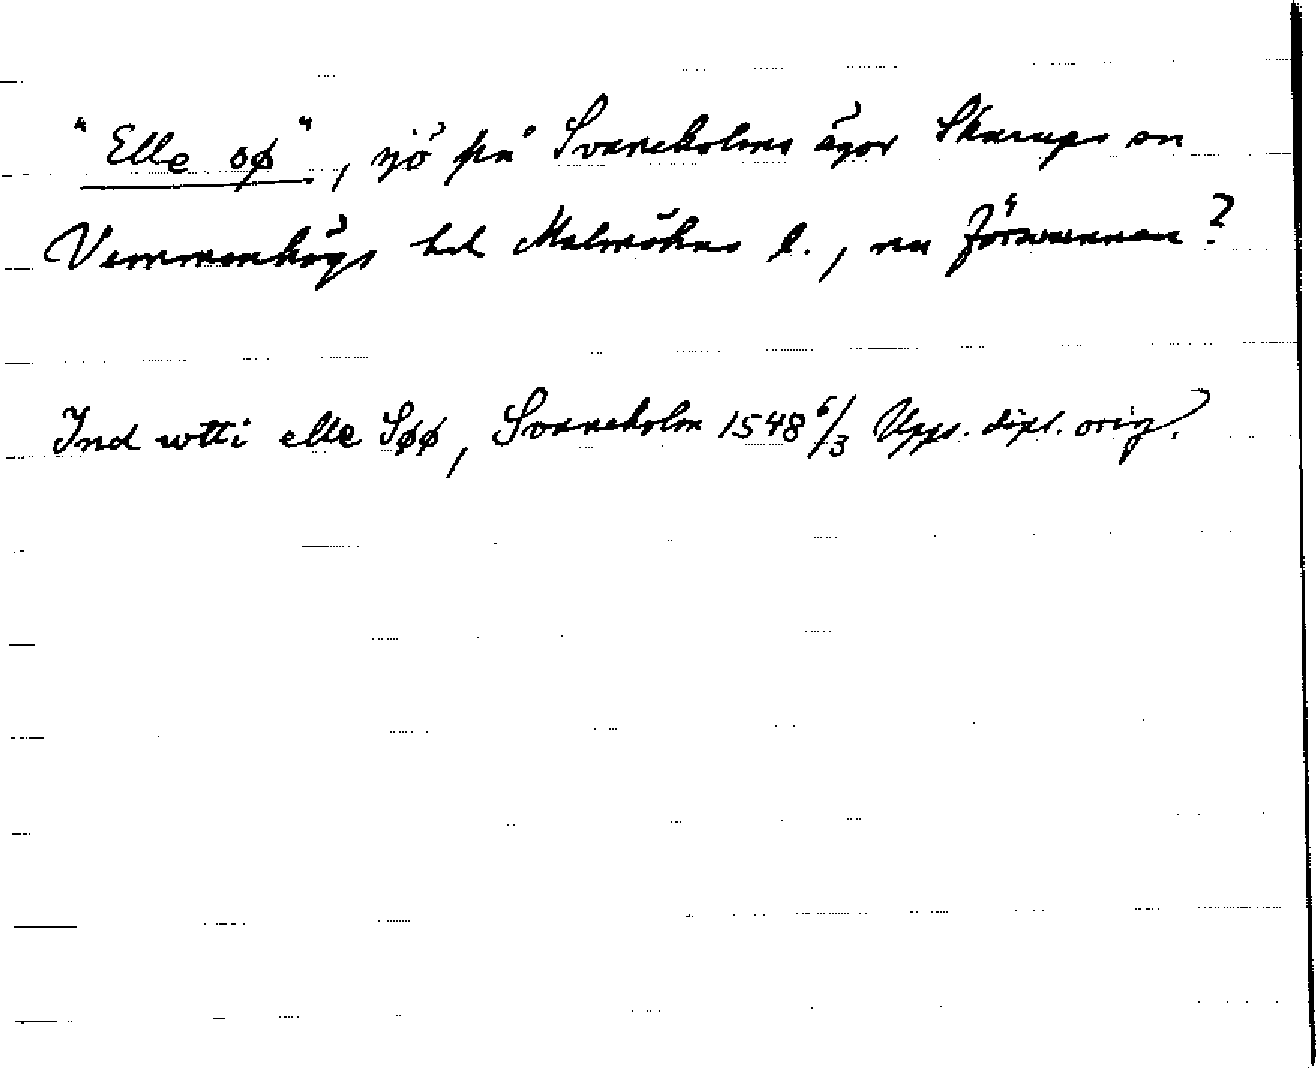 "Elle sø", sjö på Svaneholms ägor Skurups sn
Vemmenhögs hd Malmöhus l., nu försvunnen?
Ind wtti elle Søø, Svaneholm 1548 6/3 Upps. dipl. orig.